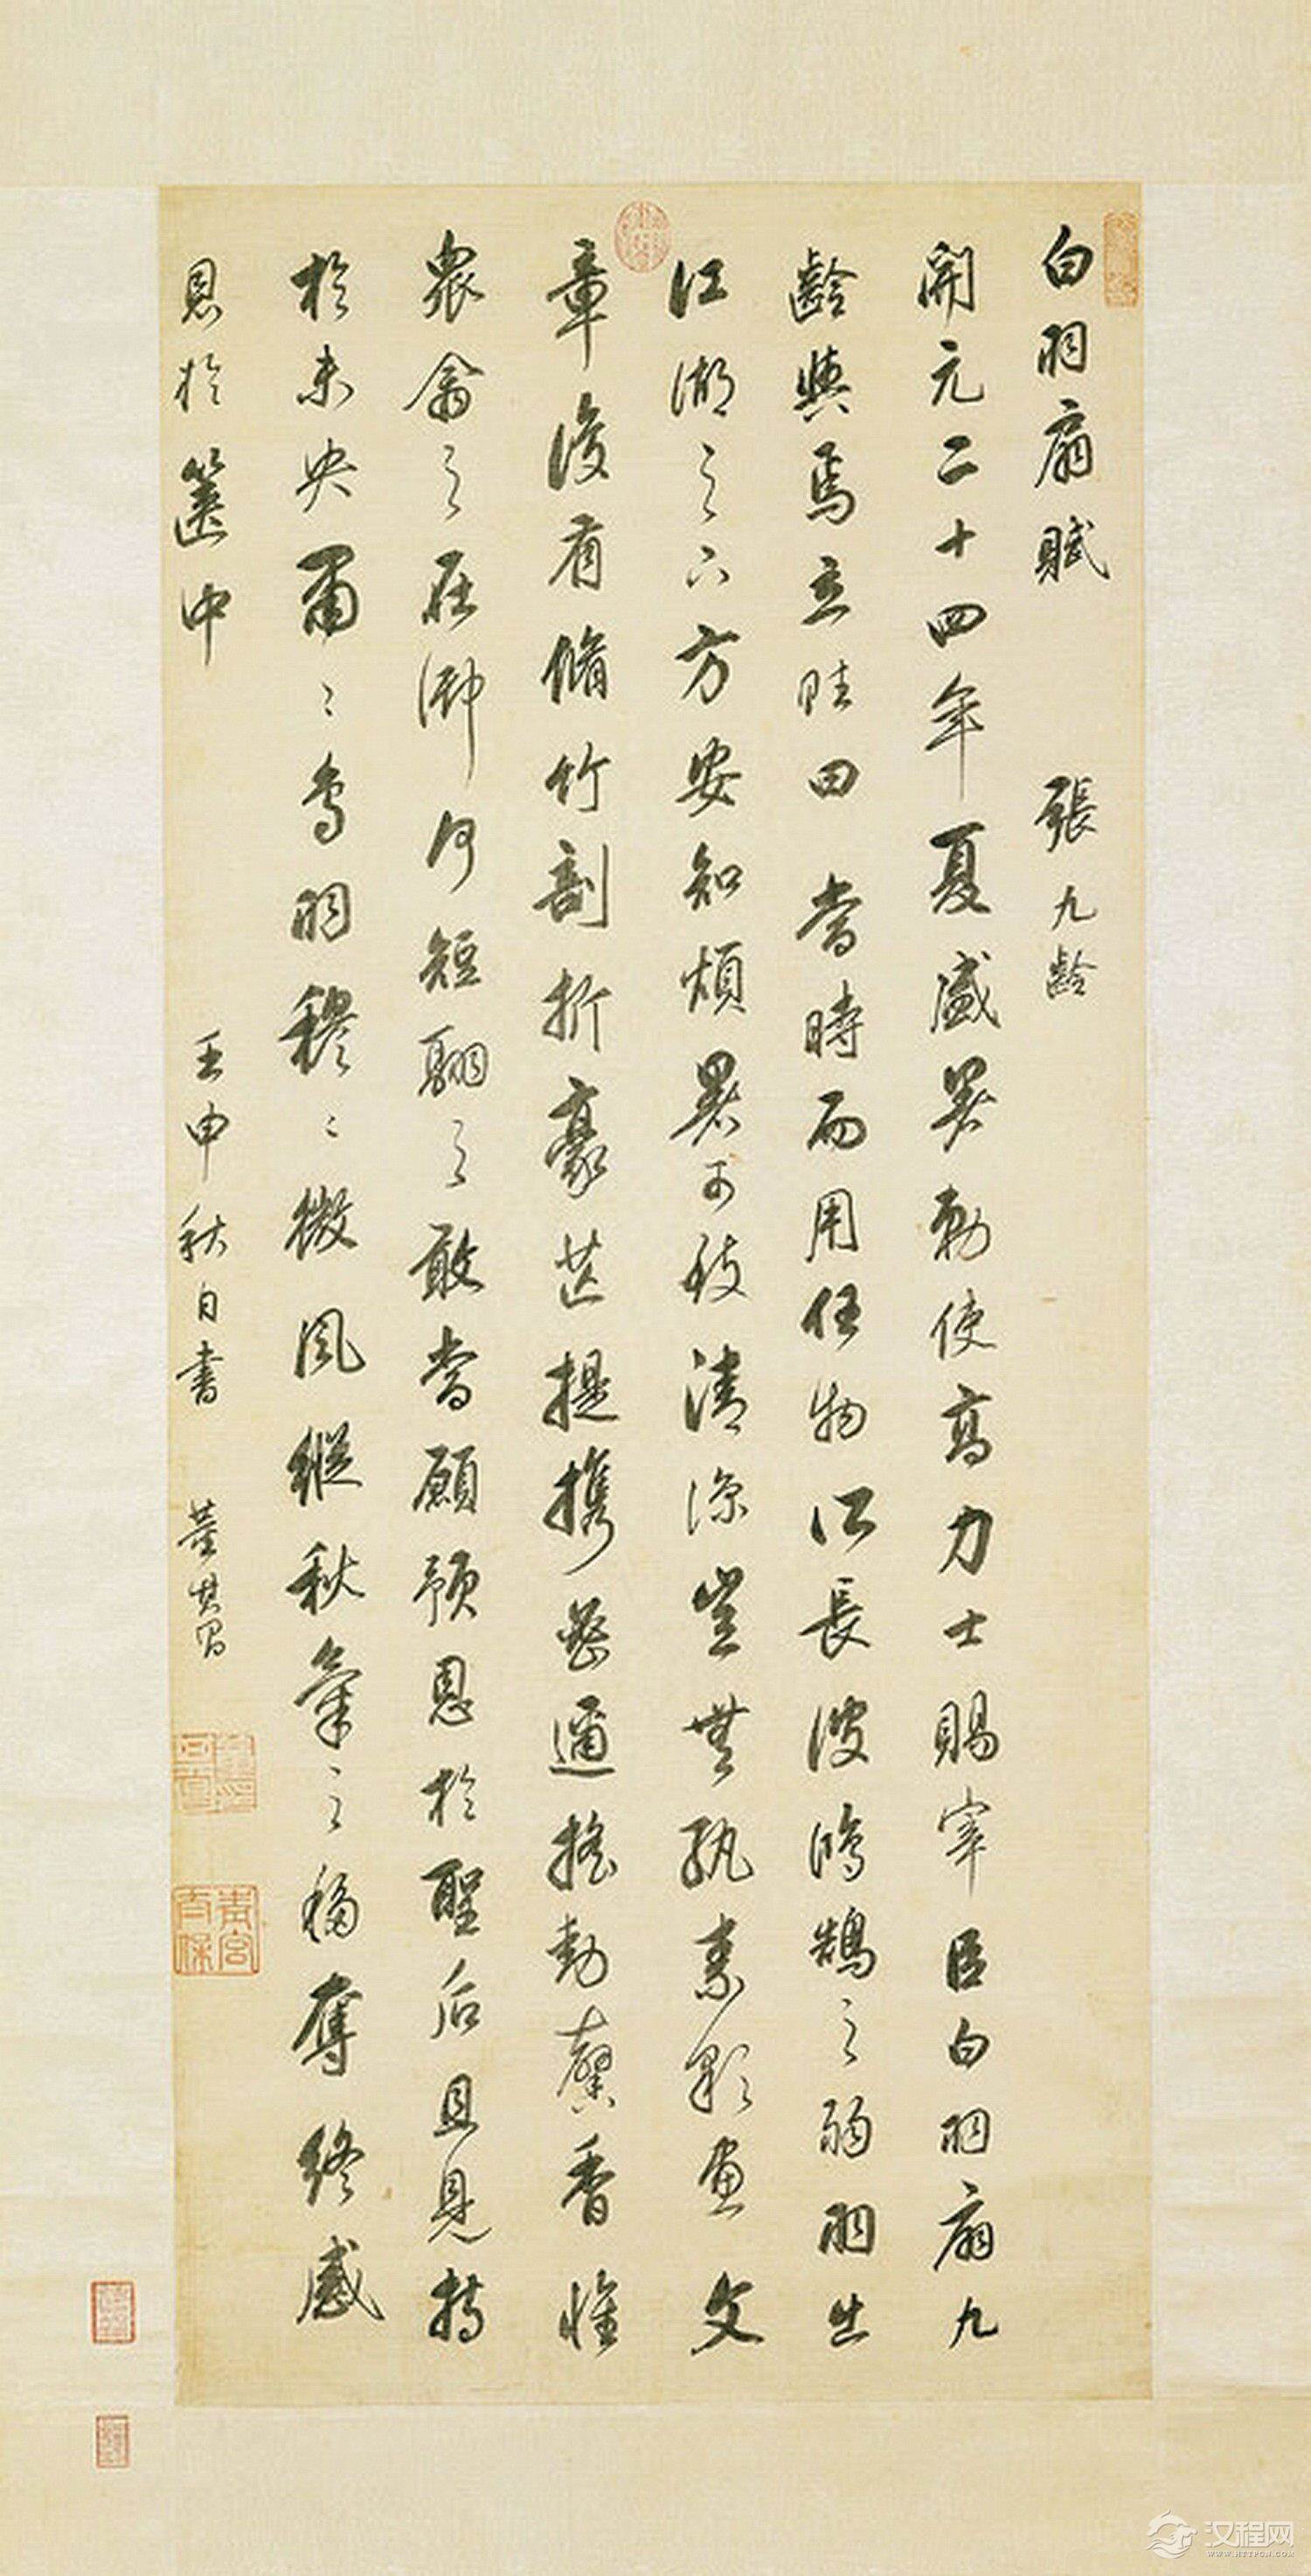 白羽扇賦 張九齡
開元二十四年夏盛暑勅使高力士賜宰臣白羽扇九
齡與焉立賦曰當時而用任物所長彼鴻鵠之弱羽出
江湖之下方安知煩暑可致清涼豈無紈素彩畫文
章復有脩竹剖析豪芒提携密邇搖動馨香惟
衆禽之在御何短翮之敢當顧預恩於聖后且見持
於未央肅〻鳥羽穆〻微風縱秋氣之移奪終感
恩於篋中
壬申秋日書 董其昌
青宮太保
汉程网
WWW.HTTPCN.COM